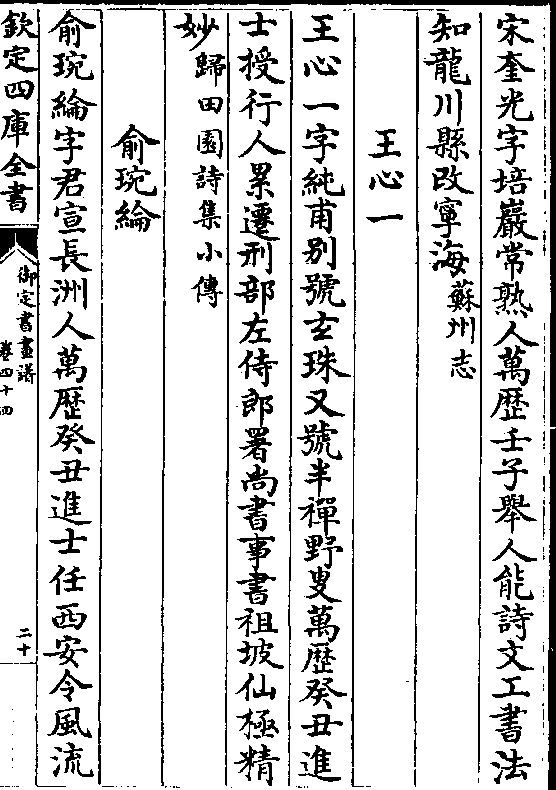 宋奎光字培巖常熟人萬厯壬子舉人能詩文工書法
知龍川縣改寧海蘇州志
王心一
王心一字純甫別號玄珠又號半禪野叟萬厯癸丑進
士授行人累遷刑部左侍郎署尚書事書祖坡仙極精
妙歸田園詩集小傳
俞琬綸
俞琬綸字君宣長洲人萬厯癸丑進士任西安令風流
欽定四庫全書
御定書畫譜
卷四十四
二十